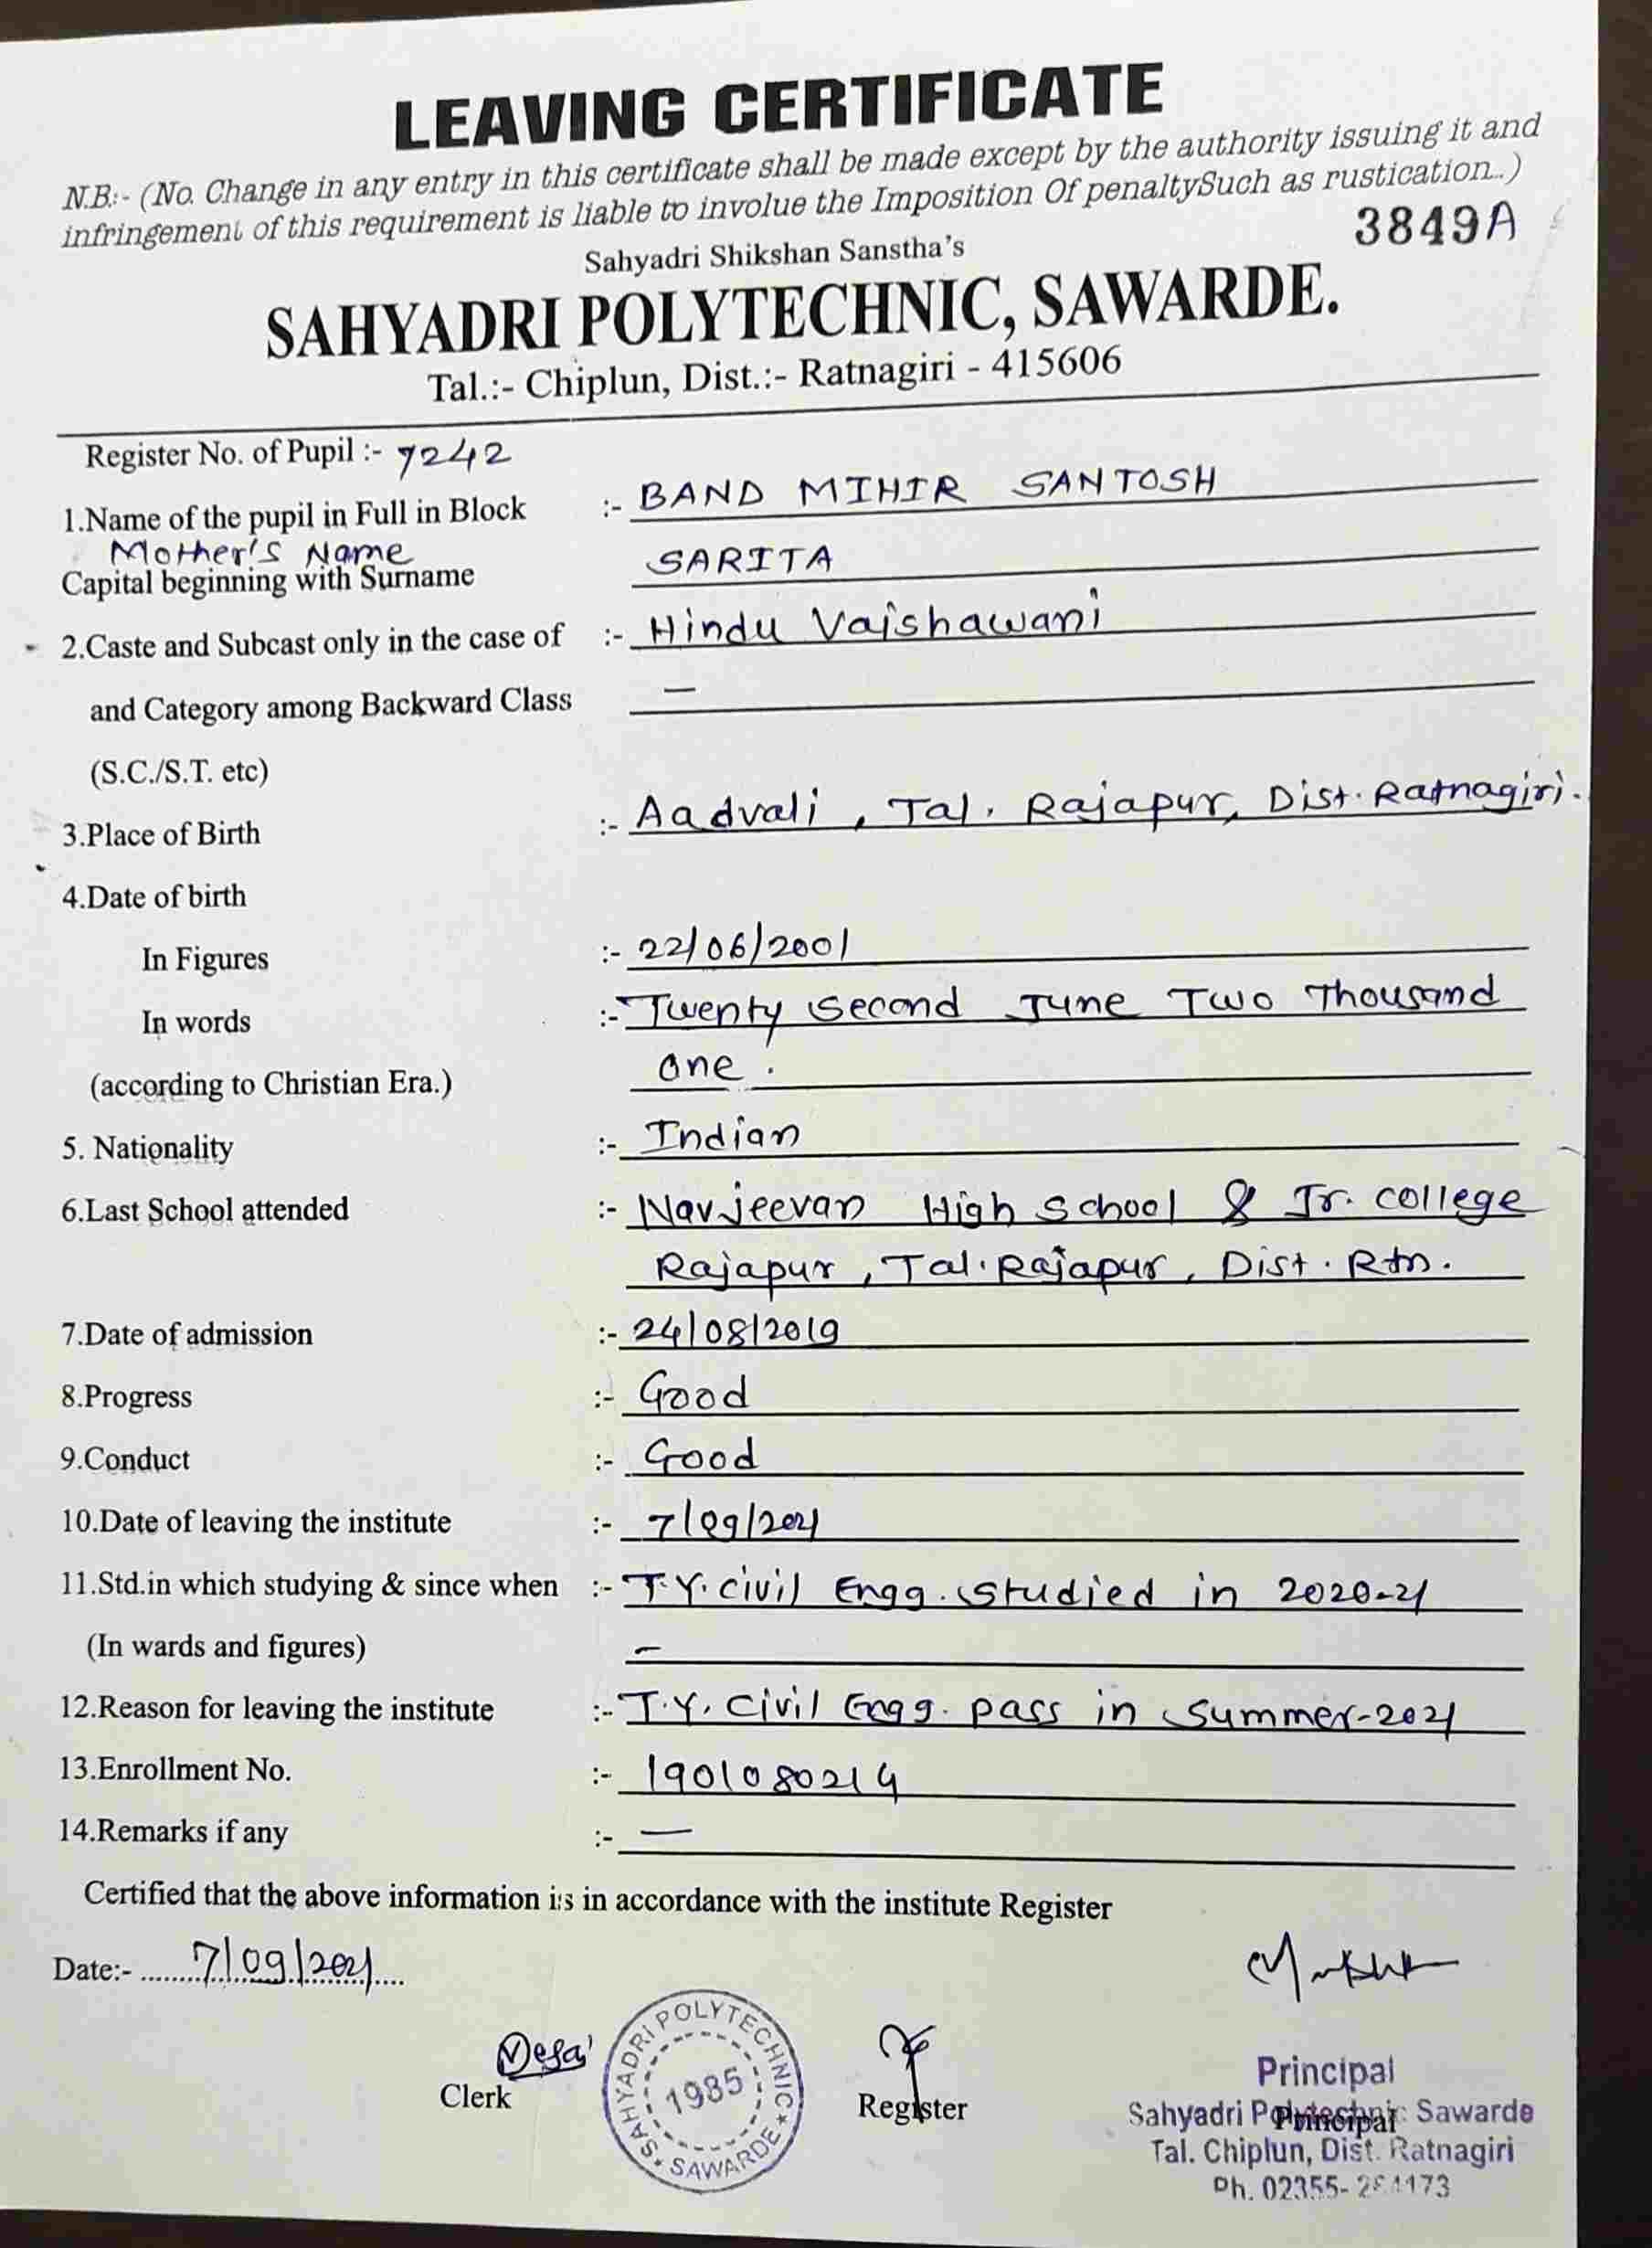 LEAVING CERTIFICATE
N.B:- (No. Change in any entry in this certificate shall be made except by the authority issuing it and
infringement of this requirement is liable to involue the Imposition Of penaltySuch as rustication..)
3849A
Sahyadri Shikshan Sanstha's
SAHYADRI POLYTECHNIC, SAWARDE.
Tal.:- Chiplun, Dist.:- Ratnagiri - 415606
Register No. of Pupil :- 7242
1.Name of the pupil in Full in Block :- BAND MIHIR SANTOSH
Mother's Name SARITA
Capital beginning with Surname
2.Caste and Subcast only in the case of :- Hindu Vaishawani
and Category among Backward Class —
(S.C./S.T. etc)
3.Place of Birth :- Aadvali, Tal. Rajapur, Dist. Ratnagiri.
4.Date of birth
In Figures :- 22/06/2001
In words :- Twenty Second June Two Thousand
(according to Christian Era.) one.
5. Nationality :- Indian
6.Last School attended :- Navjeevan High School & Jr. college
Rajapur, Tal. Rajapur, Dist. Rtn.
7.Date of admission :- 24/08/2019
8.Progress :- Good
9.Conduct :- Good
10.Date of leaving the institute :- 7/09/2021
11.Std.in which studying & since when :- T.Y. civil Engg. Studied in 2020-21
(In wards and figures) —
12.Reason for leaving the institute :- T.Y. Civil Engg. pass in Summer-2021
13.Enrollment No. :- 1901080214
14.Remarks if any :- —
Certified that the above information is in accordance with the institute Register
Date:- 7/09/2021
Clerk
SAHYADRI POLYTECHNIC ★ SAWARDE ★
1985
Register
Principal
Principal
Sahyadri Polytechnic Sawarde
Tal. Chiplun, Dist. Ratnagiri
Ph. 02355-